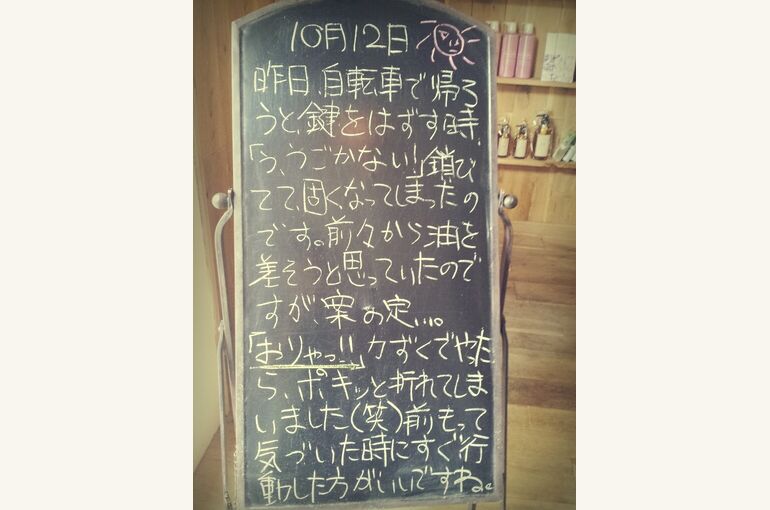 10月12日
昨日、自転車で帰ろ
うと、鍵をはずす時、
「う、うごかない!」鎖び
てて、固くなってしまったの
です。前々から油を
差そうと思っていたので
すが、案の定....。
「おりゃっ!!」力ずくでやった
ら、ポキッと折れてしま
いました(笑)前もって
気づいた時にすぐ行
動した方がいいですね。